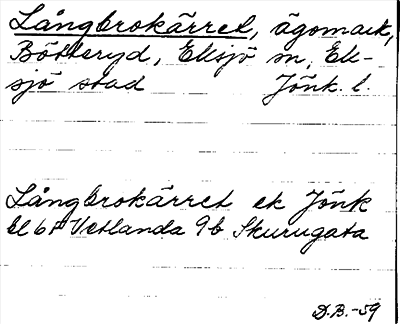 Långbrokärret, ägomark,
Bötteryd, Eksjö sn, Ek-
sjö stad Jönk. l.
Långbrokärret ek Jönk
bl 61 Vetlanda 9b Skurugata
D.B.-59